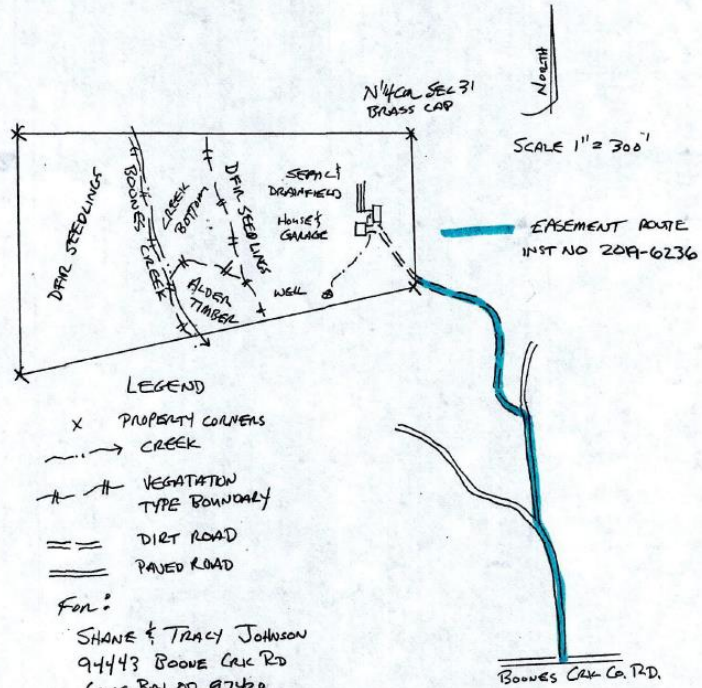 NORTH
N 1/4 COR SEC 31
BRASS CAP
SCALE 1" = 300'
EASEMENT ROUTE
INST NO 2019-6236
DFIR SEEDLINGS
BOONES CREEK
CREEK
BOTTOM
DFIR SEEDLINGS
ALDER
TIMBER
SEPTIC &
DRAINFIELD
HOUSE &
GARAGE
WELL
LEGEND
X PROPERTY CORNERS
CREEK
VEGATATION
TYPE BOUNDARY
DIRT ROAD
PAVED ROAD
FOR:
SHANE & TRACY JOHNSON
94443 BOONE CRK RD
BOONES CRK CO. RD.